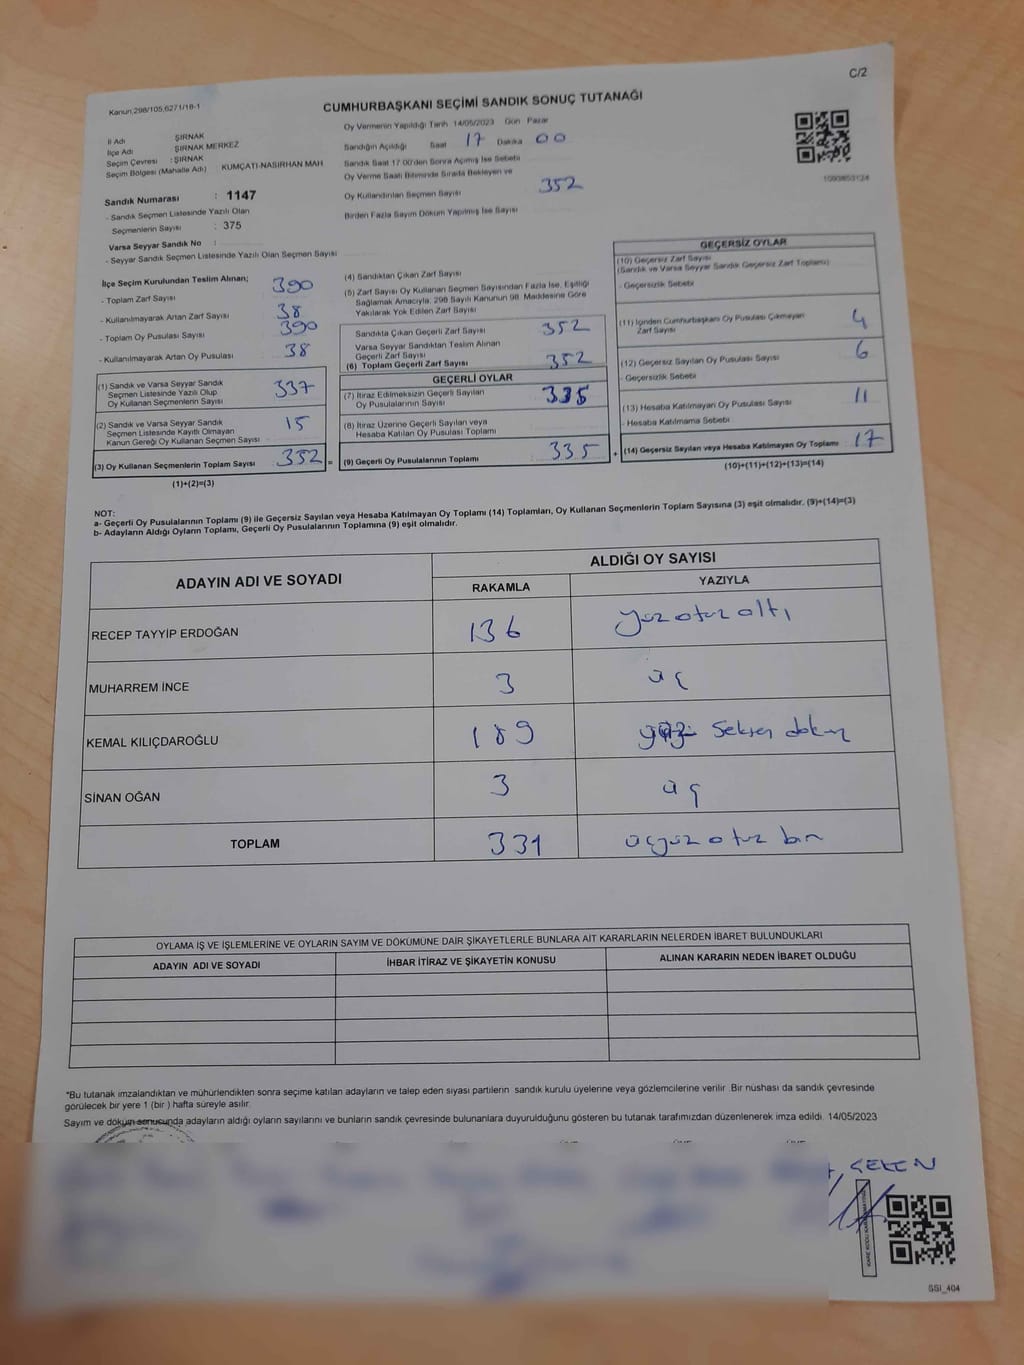 C/2
Kanun:298/105,6271/18-1
CUMHURBAŞKANI SEÇİMİ SANDIK SONUÇ TUTANAĞI
İl Adı ŞIRNAK
İlçe Adı ŞIRNAK MERKEZ
Seçim Çevresi : ŞIRNAK
Seçim Bölgesi (Mahalle Adı) : KUMÇATI-NASIRHAN MAH
Sandık Numarası : 1147
- Sandık Seçmen Listesinde Yazılı Olan
Seçmenlerin Sayısı : 375
Varsa Seyyar Sandık No :
- Seyyar Sandık Seçmen Listesinde Yazılı Olan Seçmen Sayısı
Oy Vermenin Yapıldığı Tarih 14/05/2023 Gün Pazar
Sandığın Açıldığı Saat 17 Dakika 00
Sandık Saat 17:00'den Sonra Açılmış İse Sebebi
Oy Verme Saati Bitiminde Sırada Bekleyen ve
Oy Kullandırılan Seçmen Sayısı 352
Birden Fazla Sayım Döküm Yapılmış İse Sayısı
1093853124
İlçe Seçim Kurulundan Teslim Alınan;
- Toplam Zarf Sayısı 390
- Kullanılmayarak Artan Zarf Sayısı 38
- Toplam Oy Pusulası Sayısı 390
- Kullanılmayarak Artan Oy Pusulası 38
(1) Sandık ve Varsa Seyyar Sandık
Seçmen Listesinde Yazılı Olup
Oy Kullanan Seçmenlerin Sayısı 337
(2) Sandık ve Varsa Seyyar Sandık
Seçmen Listesinde Kayıtlı Olmayan
Kanun Gereği Oy Kullanan Seçmen Sayısı 15
(3) Oy Kullanan Seçmenlerin Toplam Sayısı 352 =
(1)+(2)=(3)
(4) Sandıktan Çıkan Zarf Sayısı
(5) Zarf Sayısı Oy Kullanan Seçmen Sayısından Fazla İse, Eşitliği
Sağlamak Amacıyla; 298 Sayılı Kanunun 98. Maddesine Göre
Yakılarak Yok Edilen Zarf Sayısı
Sandıkta Çıkan Geçerli Zarf Sayısı 352
Varsa Seyyar Sandıktan Teslim Alınan
Geçerli Zarf Sayısı
(6) Toplam Geçerli Zarf Sayısı 352
GEÇERLİ OYLAR
(7) İtiraz Edilmeksizin Geçerli Sayılan
Oy Pusulalarının Sayısı 335
(8) İtiraz Üzerine Geçerli Sayılan veya
Hesaba Katılan Oy Pusulası Toplamı
(9) Geçerli Oy Pusulalarının Toplamı 335 +
GEÇERSİZ OYLAR
(10) Geçersiz Zarf Sayısı
(Sandık ve Varsa Seyyar Sandık Geçersiz Zarf Toplamı)
- Geçersizlik Sebebi
(11) İçinden Cumhurbaşkanı Oy Pusulası Çıkmayan
Zarf Sayısı 4
(12) Geçersiz Sayılan Oy Pusulası Sayısı 6
- Geçersizlik Sebebi
(13) Hesaba Katılmayan Oy Pusulası Sayısı 11
- Hesaba Katılmama Sebebi
(14) Geçersiz Sayılan veya Hesaba Katılmayan Oy Toplamı 17
(10)+(11)+(12)+(13)=(14)
NOT:
a- Geçerli Oy Pusulalarının Toplamı (9) ile Geçersiz Sayılan veya Hesaba Katılmayan Oy Toplamı (14) Toplamları, Oy Kullanan Seçmenlerin Toplam Sayısına (3) eşit olmalıdır. (9)+(14)=(3)
b- Adayların Aldığı Oyların Toplamı, Geçerli Oy Pusulalarının Toplamına (9) eşit olmalıdır.
ADAYIN ADI VE SOYADI ALDIĞI OY SAYISI
RAKAMLA YAZIYLA
RECEP TAYYİP ERDOĞAN 136 yüz otuz altı
MUHARREM İNCE 3 üç
KEMAL KILIÇDAROĞLU 189 yüz seksen dokuz
SİNAN OĞAN 3 üç
TOPLAM 331 üçyüz otuz bir
OYLAMA İŞ VE İŞLEMLERİNE VE OYLARIN SAYIM VE DÖKÜMÜNE DAİR ŞİKAYETLERLE BUNLARA AİT KARARLARIN NELERDEN İBARET BULUNDUKLARI
ADAYIN ADI VE SOYADI İHBAR İTİRAZ VE ŞİKAYETİN KONUSU ALINAN KARARIN NEDEN İBARET OLDUĞU
*Bu tutanak imzalandıktan ve mühürlendikten sonra seçime katılan adayların ve talep eden siyasi partilerin sandık kurulu üyelerine veya gözlemcilerine verilir. Bir nüshası da sandık çevresinde
görülecek bir yere 1 (bir) hafta süreyle asılır.
Sayım ve döküm sonucunda adayların aldığı oyların sayılarını ve bunların sandık çevresinde bulunanlara duyurulduğunu gösteren bu tutanak tarafımızdan düzenlenerek imza edildi. 14/05/2023
SSI_404